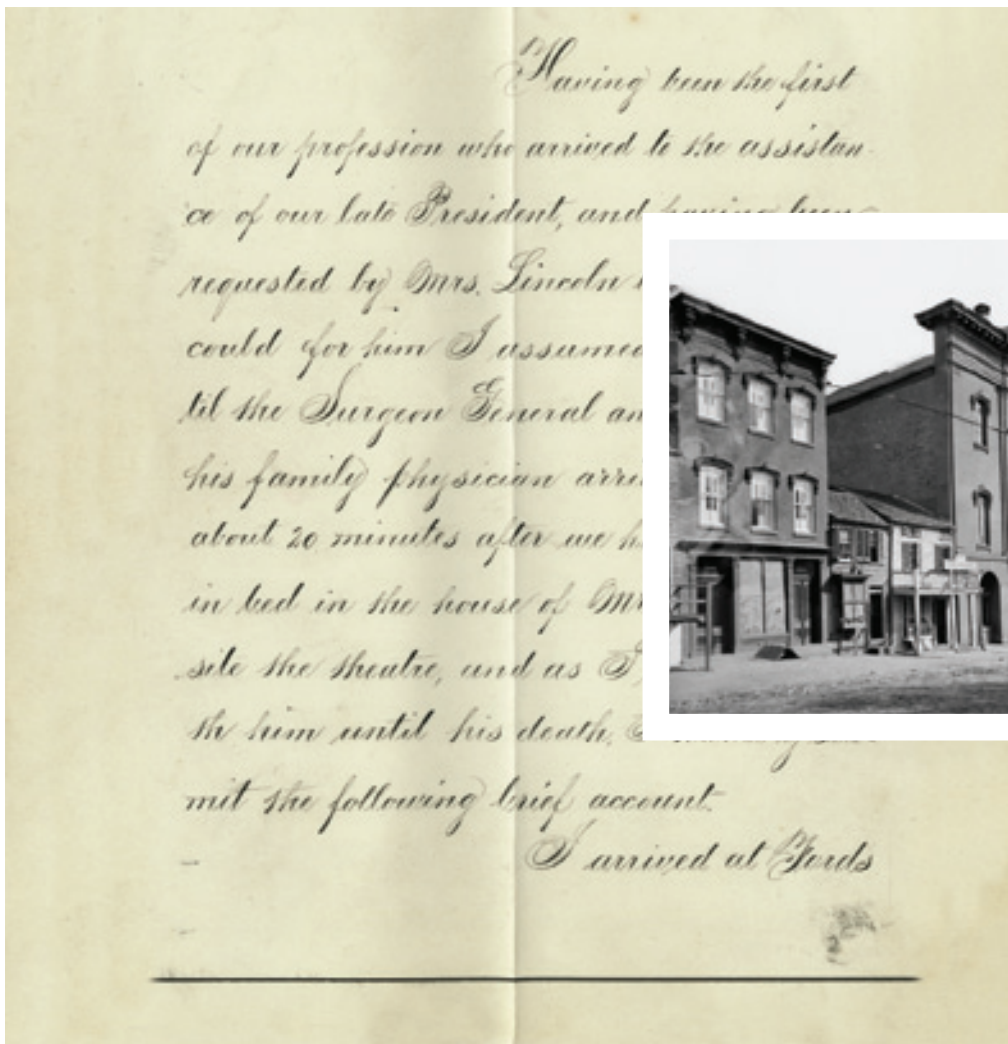 Having been the first
of our profession who arrived to the assistan-
ce of our late President, and having been
requested by Mrs. Lincoln
could for him I assumed
til the Surgeon General an
his family physician arri
about 20 minutes after we h
in bed in the house of Mr
site the theatre, and as I
th him until his death,
mit the following brief account.
I arrived at Fords